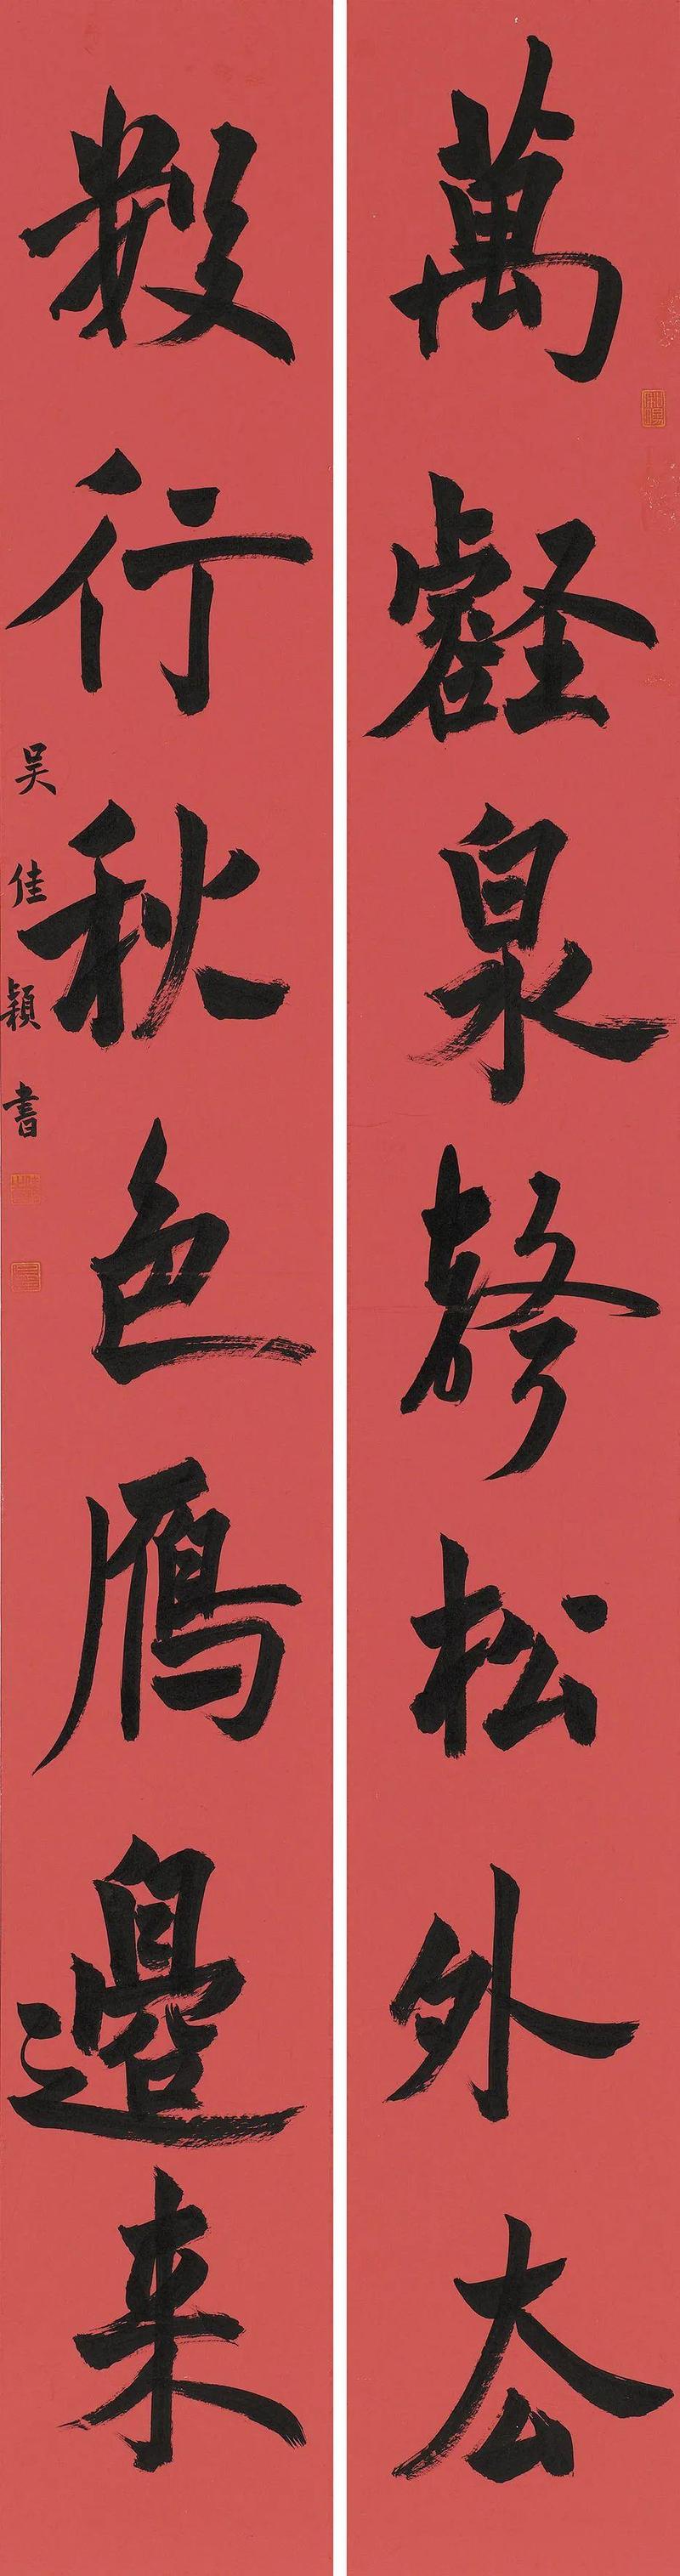 萬壑泉聲松外去
數行秋色雁邊來
吳佳穎書